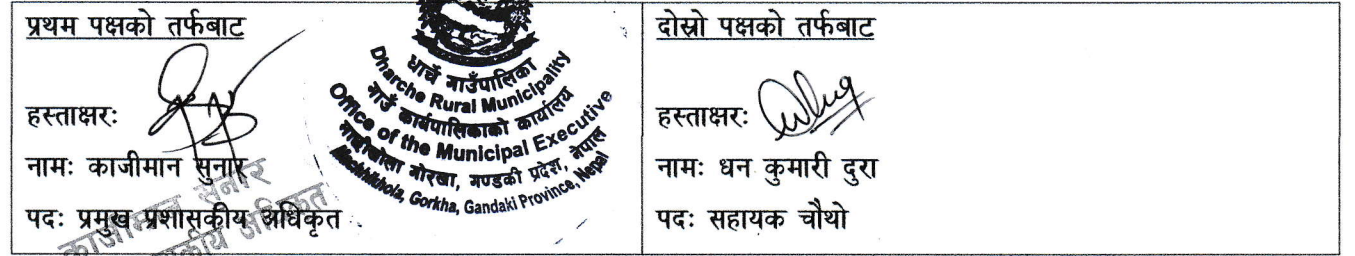 प्रथम पक्षको तर्फबाट
हस्ताक्षरः
नामः काजीमान सुनार
पदः प्रमुख प्रशासकीय अधिकृत
धार्चे गाउँपालिका
Dharche Rural Municipality
गाउँ कार्यपालिकाको कार्यालय
Office of the Municipal Executive
माछीखोला गोरखा, गण्डकी प्रदेश, नेपाल
Machhikhola, Gorkha, Gandaki Province, Nepal
काजीमान सुनार
अधिकृत
दोस्रो पक्षको तर्फबाट
हस्ताक्षरः
नामः धन कुमारी दुरा
पदः सहायक चौथो